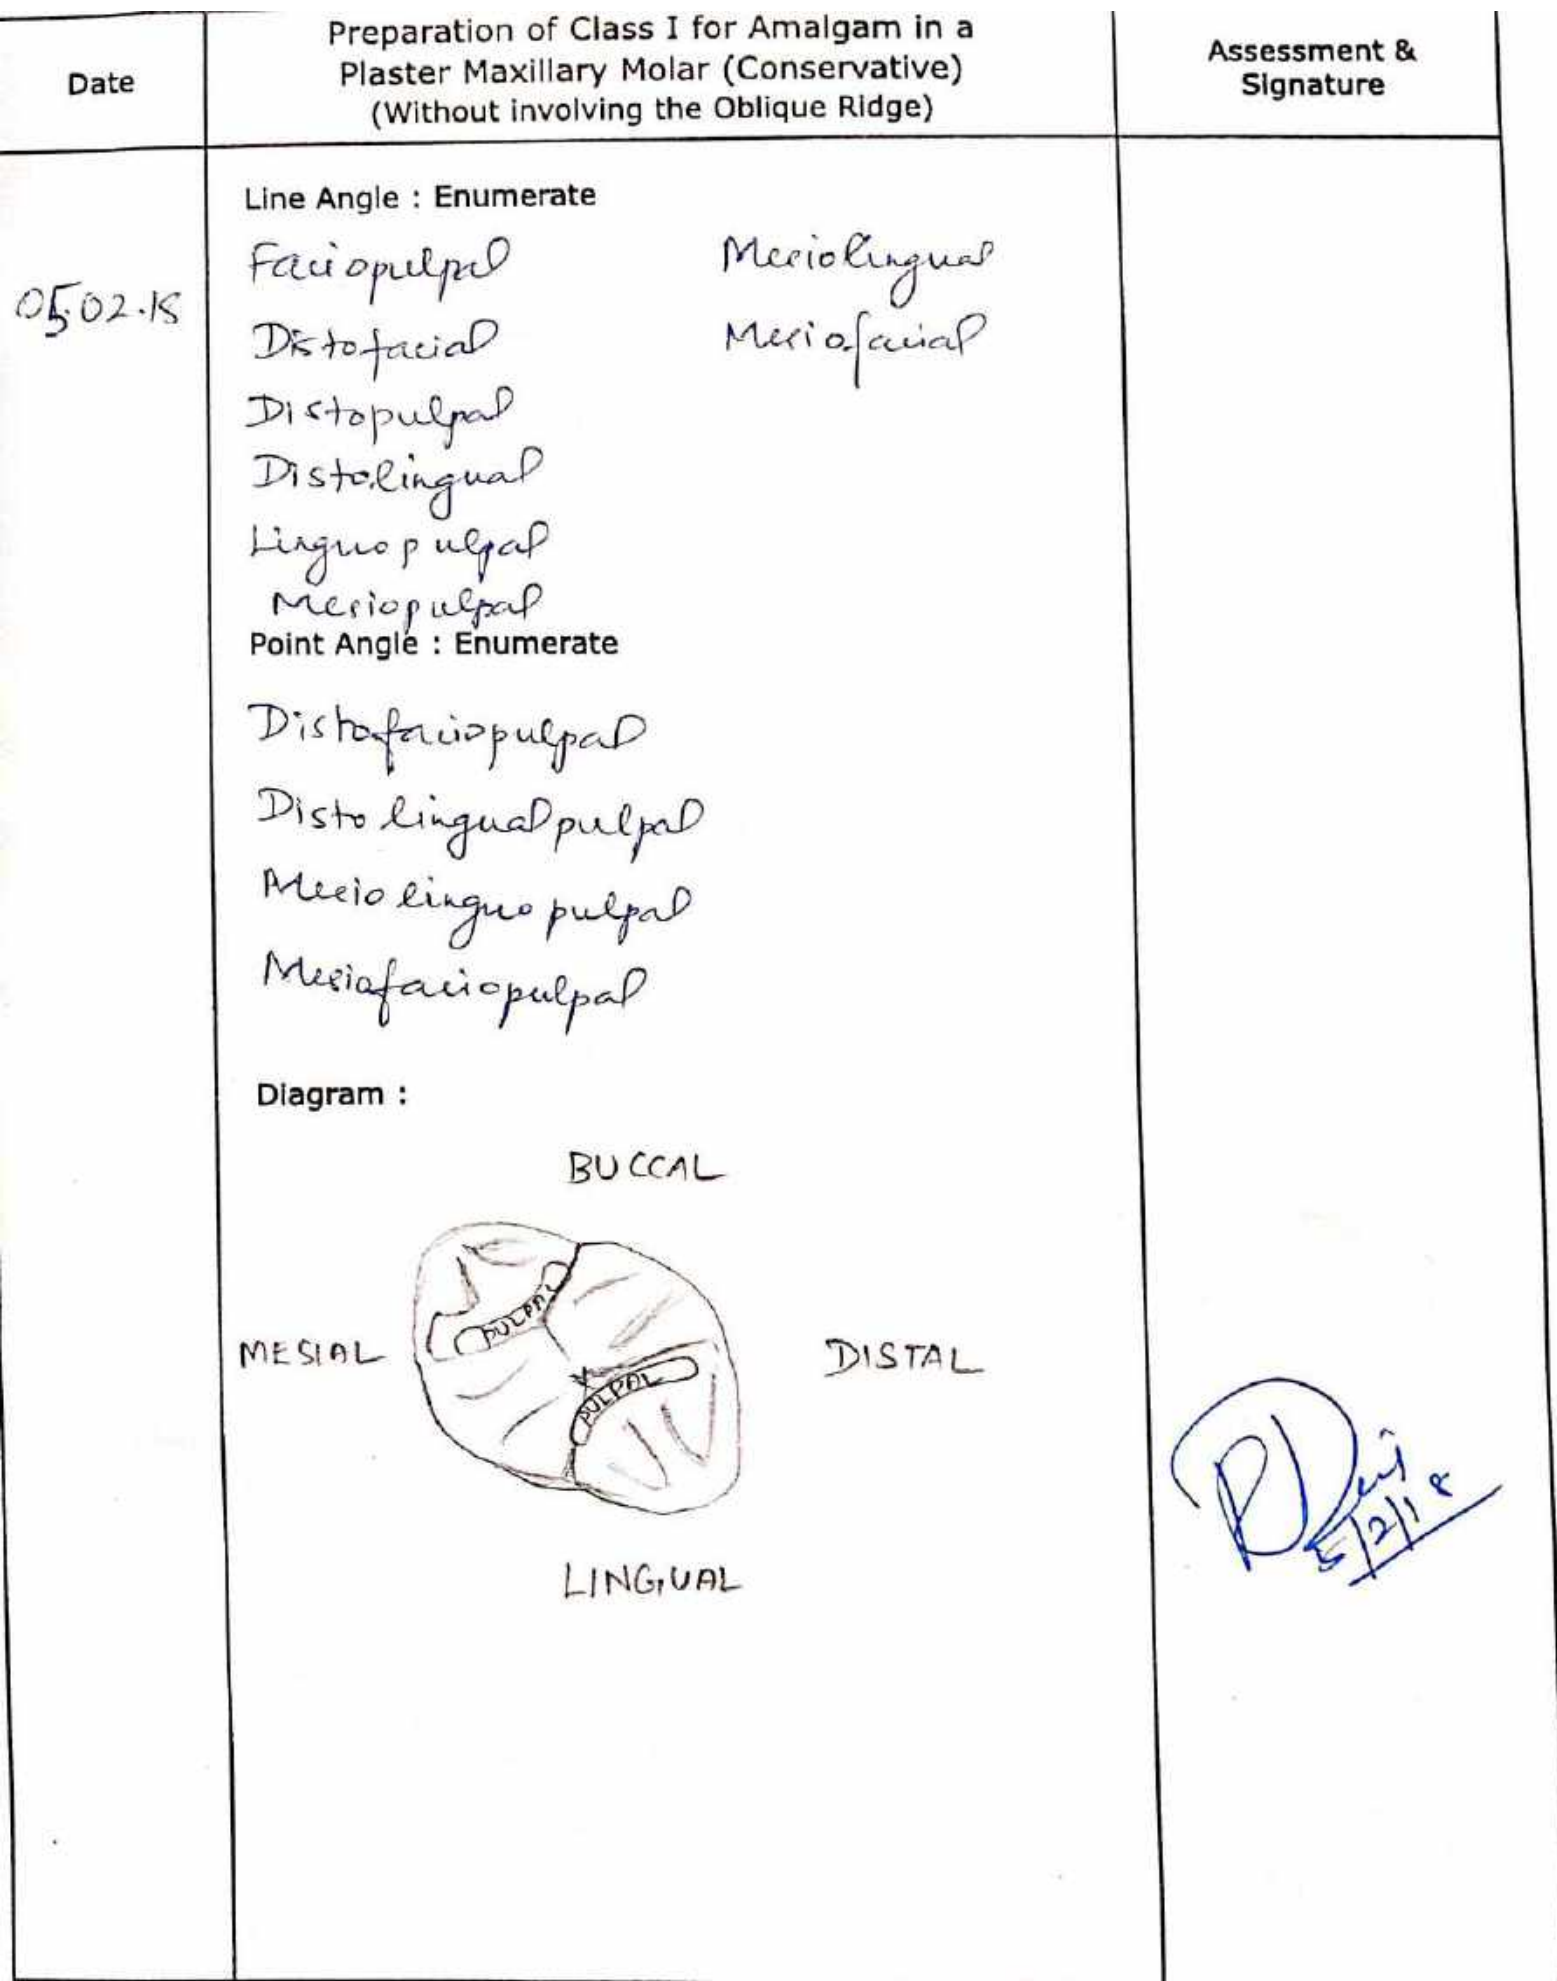 Date
Preparation of Class I for Amalgam in a
Plaster Maxillary Molar (Conservative)
(Without involving the Oblique Ridge)
Assessment &
Signature
05.02.18
Line Angle : Enumerate
Faciopulpal
Mesiolingual
Distofacial
Mesiofacial
Distopulpal
Distolingual
Linguopulpal
Mesiopulpal
Point Angle : Enumerate
Distofaciopulpal
Distolingualpulpal
Mesiolinguopulpal
Mesiofaciopulpal
Diagram :
BUCCAL
PULPAL
MESIAL
DISTAL
PULPAL
LINGUAL
5/2/18